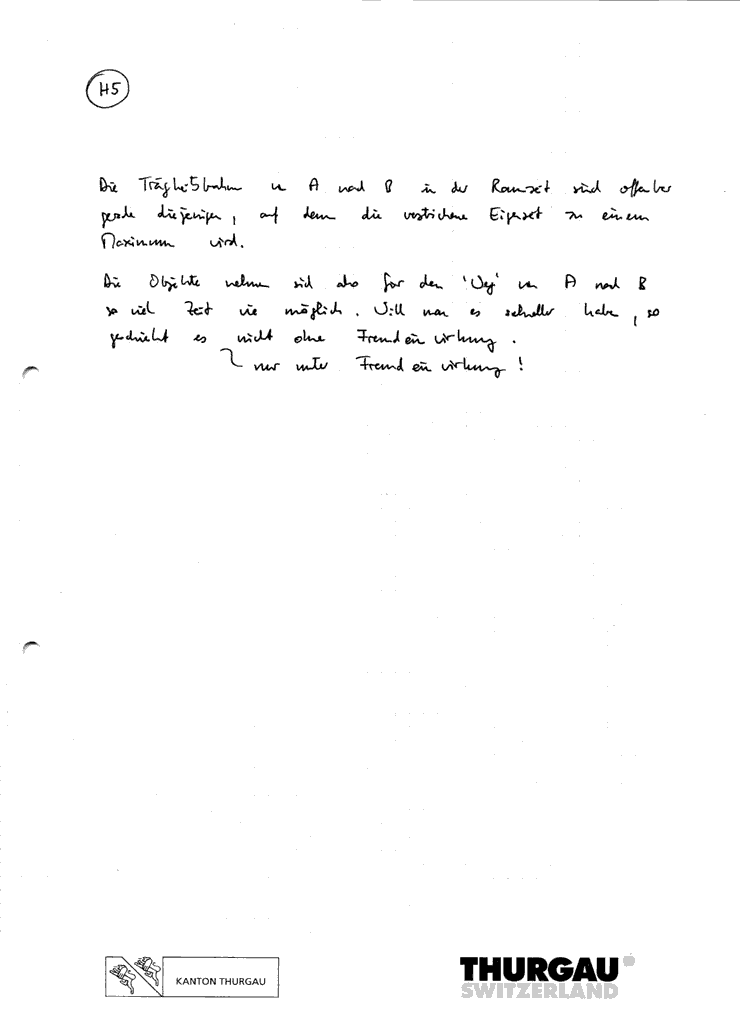 H5
Die Trägheitsbahnen von A nach B in der Raumzeit sind offenbar
gerade diejenigen, auf denen die verstrichene Eigenzeit zu einem
Maximum wird.
Die Objekte nehmen sich also für den 'Weg' von A nach B
so viel Zeit wie möglich. Will man es schneller haben, so
geschieht es nicht ohne Fremdeinwirkung.
nur unter Fremdeinwirkung!
KANTON THURGAU
THURGAU
SWITZERLAND